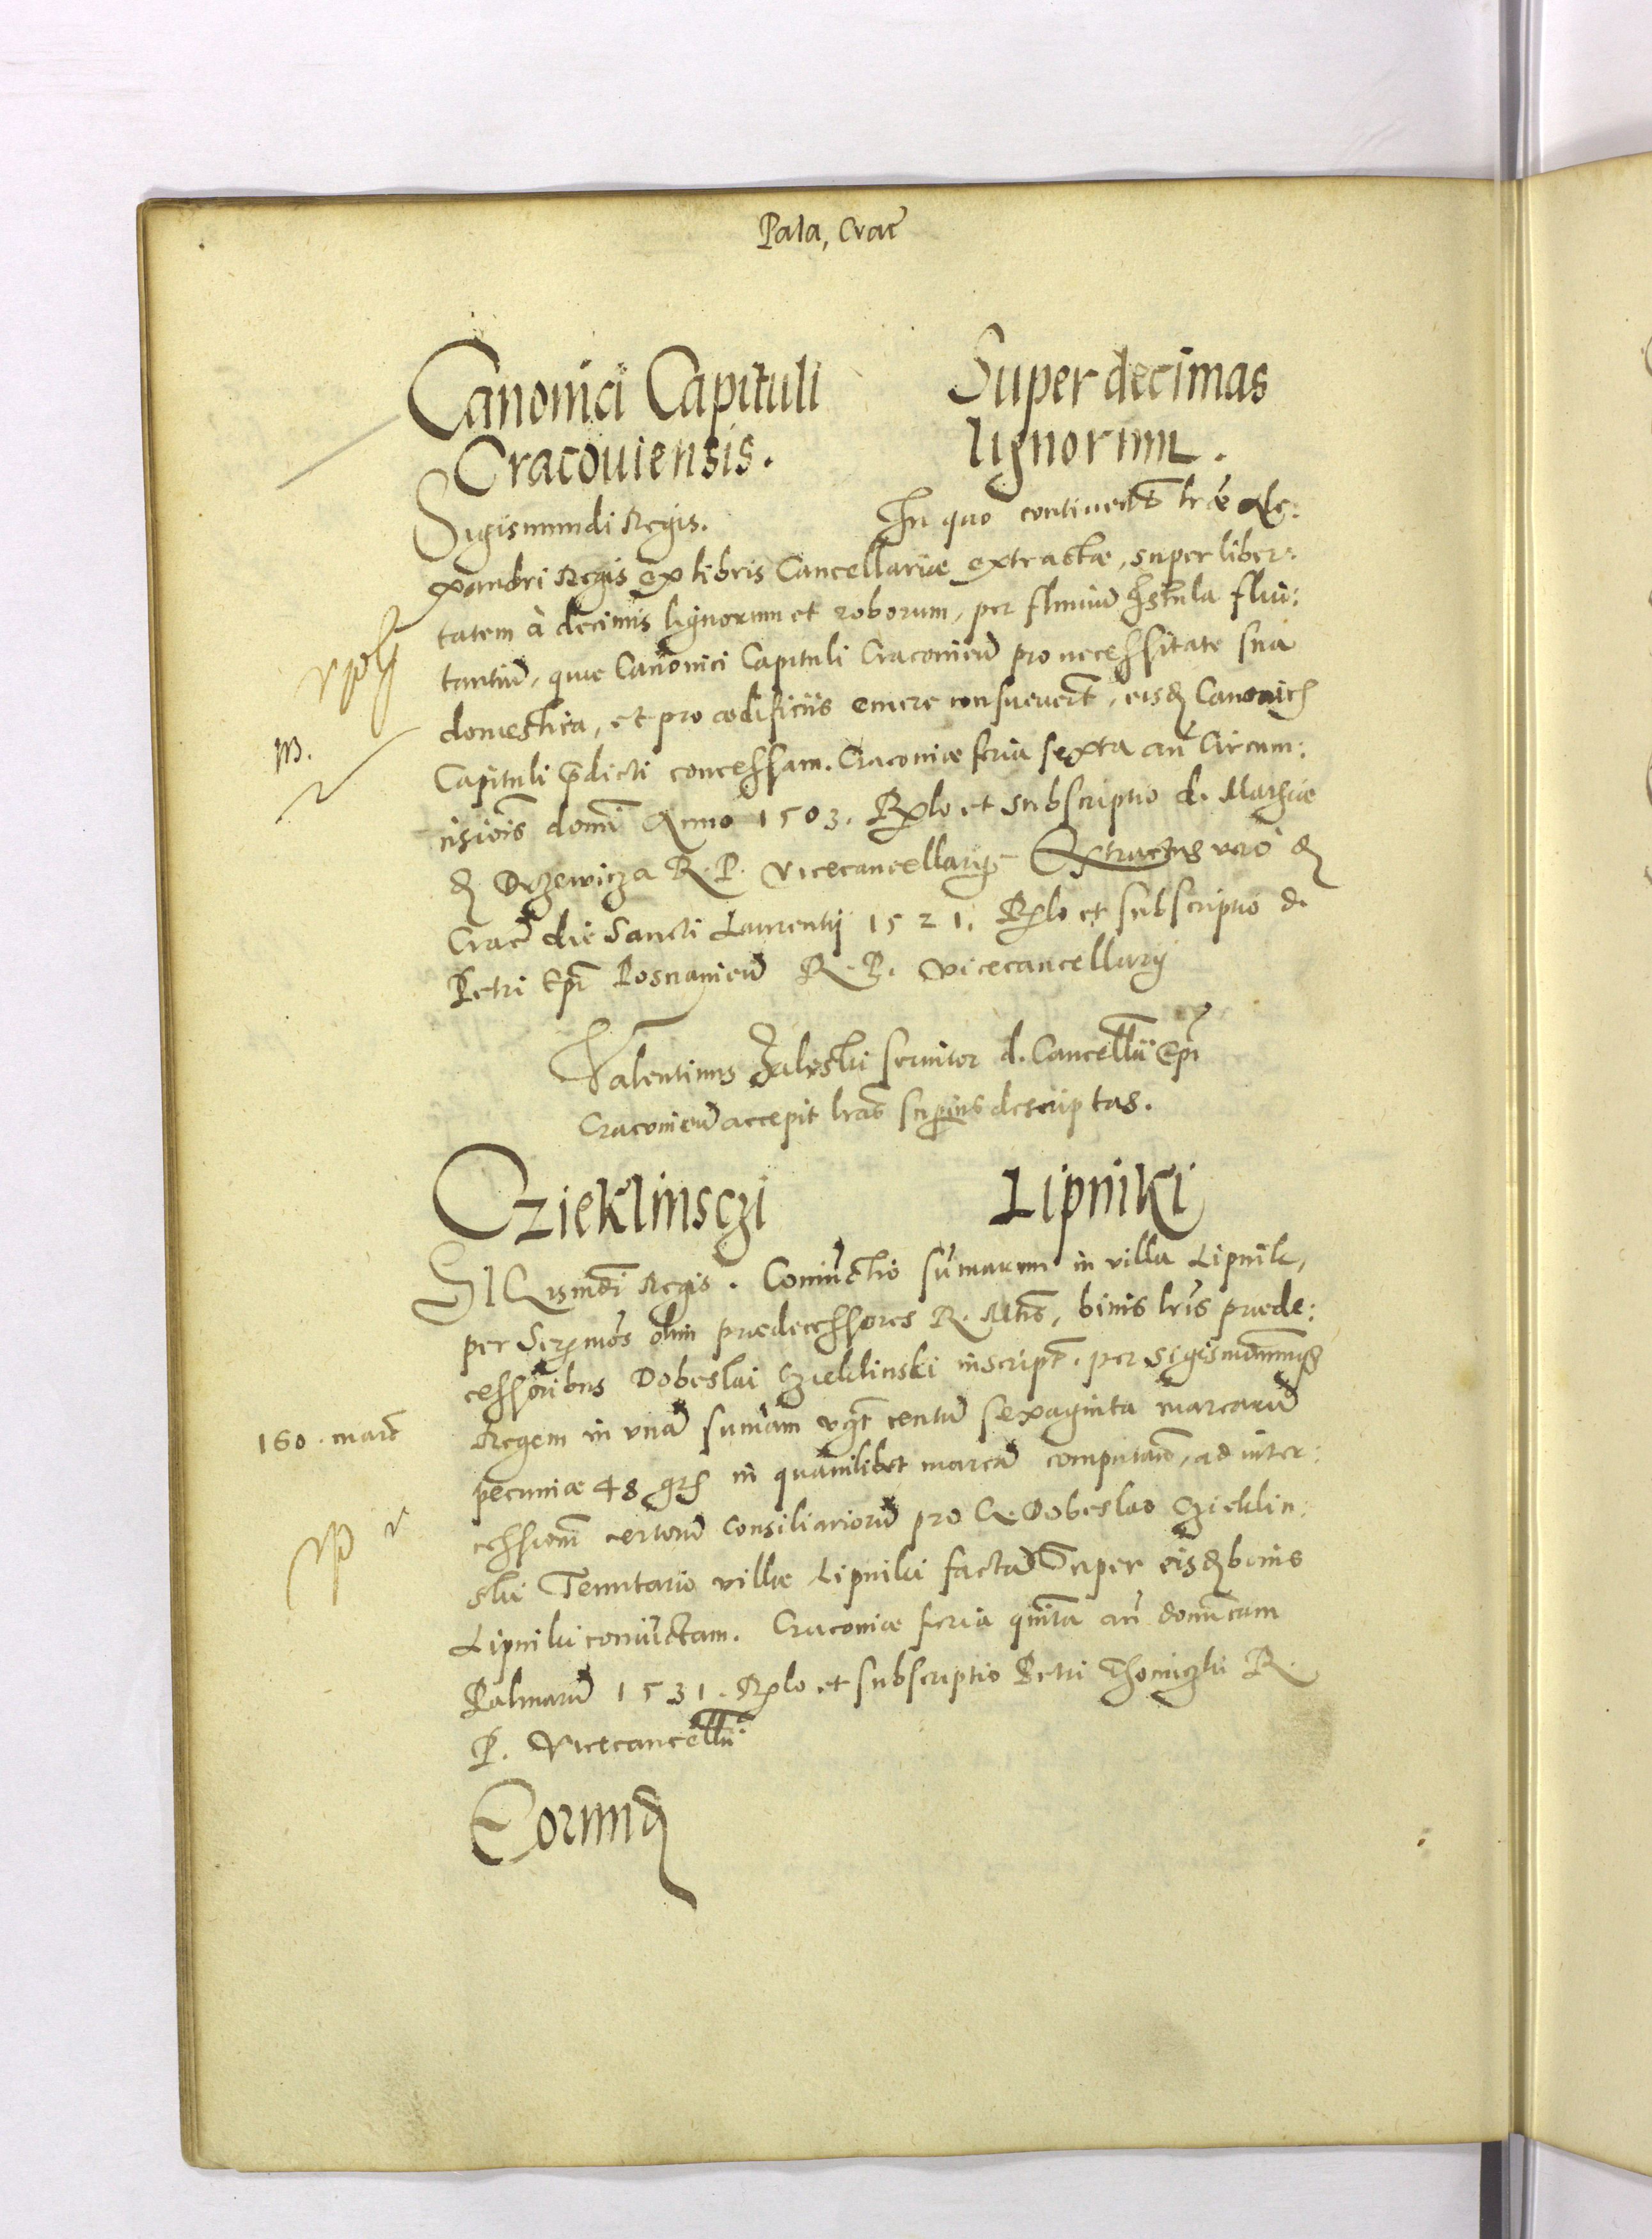 Pala, Crac
Canonici Capituli
Cracouiensis.
Super decimas
lignorum.
Sigismundi Regis. In quo continent lræ Ale:
xandri Regis ex libris Cancellariæ extractæ, super liber:
tatem à decimis lignorum et roborum, per fluuiu Istula flui:
tantiu, quæ Canonici Capituli Cracouien pro necessitate sua
domestica, et pro ædificiis emere consueuert, eisd Canonicis
Capituli pdicti concessam. Cracouiæ feria sexta an Circum:
cisiois domi Anno 1503. Rlo et subscriptio d. Mathiæ
d Drzewicza R. P. Vicecancellary Extractus vero d
Crac die Sancti Laurentij 1521. Rlo et subscriptio d.
Petri Epi Posnanien R. P. Vicecancellary
Valentinus Zaleski seruitor d. Cancellii Epi
Cracouien accepit lras superius descriptas.
Czieklinsczi
Lipniki
Sigismdi Regis. Coniuctio sumarum in villa Lipnik,
per Sermos olim prædecessores R. Mtis, binis lris præde:
cessoribus Dobeslai Czieklinski inscript. per Sigismundum
Regem in vna sumam vzt centu sexaginta marcaru
pecuniæ 48 grs in quamlibet marca computan, ad inter:
cessiom certoru Consiliarioru pro G. Dobeslao Czieklin:
ski Tenutario villæ Lipniki facta Super eisd bonis
Lipniki coniuctam. Cracouiæ feria quinta an domicam
Palmaru 1531. Rlo et subscriptio Petri Thomiczki R.
P. Vicecancellii
Eorund
m.
160. marc